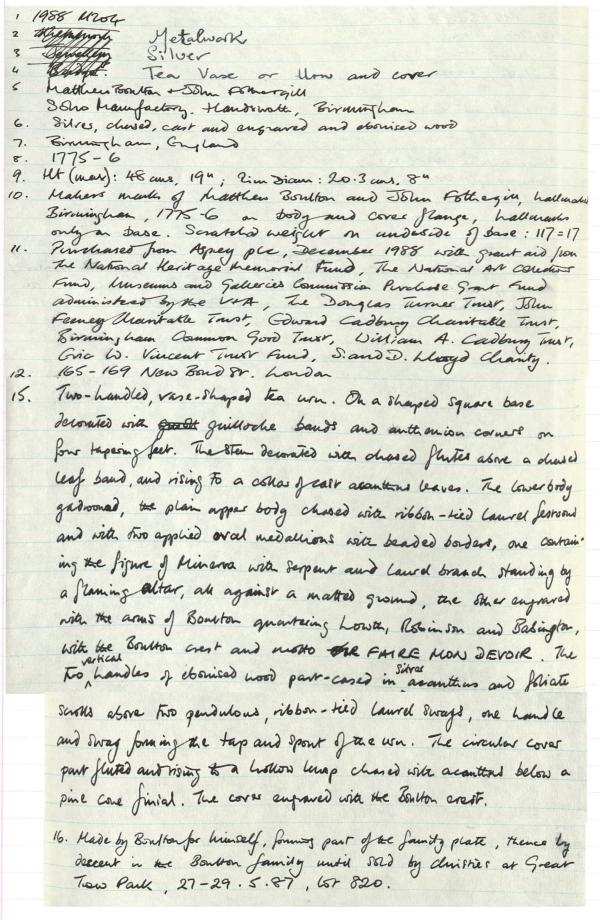 1 1988 M204
2 Metalwork
3 Silver
4 Tea Vase or Urn and cover
5 Matthew Boulton & John Fothergill
Soho Manufactory. Handsworth, Birmingham
6. Silver, chased, cast and engraved and ebonised wood
7. Birmingham, England
8. 1775-6
9. Ht (max): 48 cms, 19"; Rim Diam: 20.3 cms, 8"
10. Makers marks of Matthew Boulton and John Fothergill, hallmarked
Birmingham, 1775-6 on body and cover flange, hallmarks
only on base. Scratched weight on underside of base: 117=17
11. Purchased from Asprey plc, December 1988 with grant aid from
the National Heritage Memorial Fund, The National Art Collections
Fund, Museums and Galleries Commission Purchase Grant Fund
administered by the V&A, The Douglas Turner Trust, John
Feeney Charitable Trust, Edward Cadbury Charitable Trust,
Birmingham Common Good Trust, William A. Cadbury Trust,
Eric W. Vincent Trust Fund, S. and D. Lloyd Charity.
12. 165-169 New Bond St. London
15. Two-handled, vase-shaped tea urn. On a shaped square base
decorated with guilloche bands and anthemion corners on
four tapering feet. The stem decorated with chased flutes above a chased
leaf band, and rising to a collar of cast acanthus leaves. The lower body
gadrooned, the plain upper body chased with ribbon-tied laurel festoons
and with two applied oval medallions with beaded borders, one contain-
ing the figure of Minerva with serpent and laurel branch standing by
a flaming altar, all against a matted ground, the other engraved
with the arms of Boulton quartering Howth, Robinson and Babington,
with the Boulton crest and motto FAIRE MON DEVOIR. The
two vertical handles of ebonised wood part-cased in silver acanthus and foliate
scrolls above two pendulous, ribbon-tied laurel swags, one handle
and swag forming the tap and spout of the urn. The circular cover
part fluted and rising to a hollow knop chased with acanthus below a
pine cone finial. The cover engraved with the Boulton crest.
16. Made by Boulton for himself, forming part of the family plate, thence by
descent in the Boulton family until sold by Christies at Great
Tew Park, 27-29.5.87, lot 820.